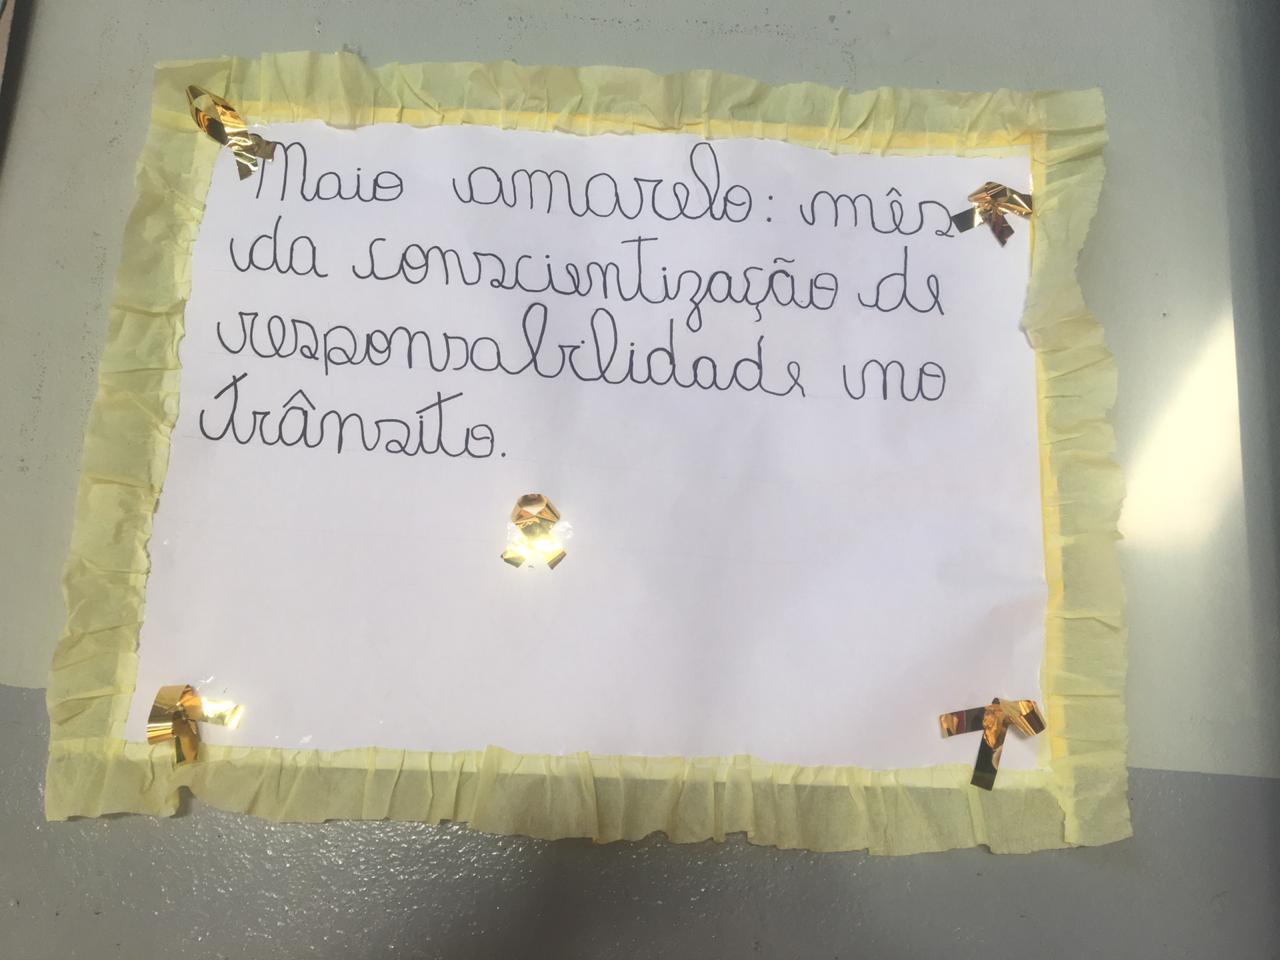 Maio amarelo: mês
da conscientização de
responsabilidade no
trânsito.